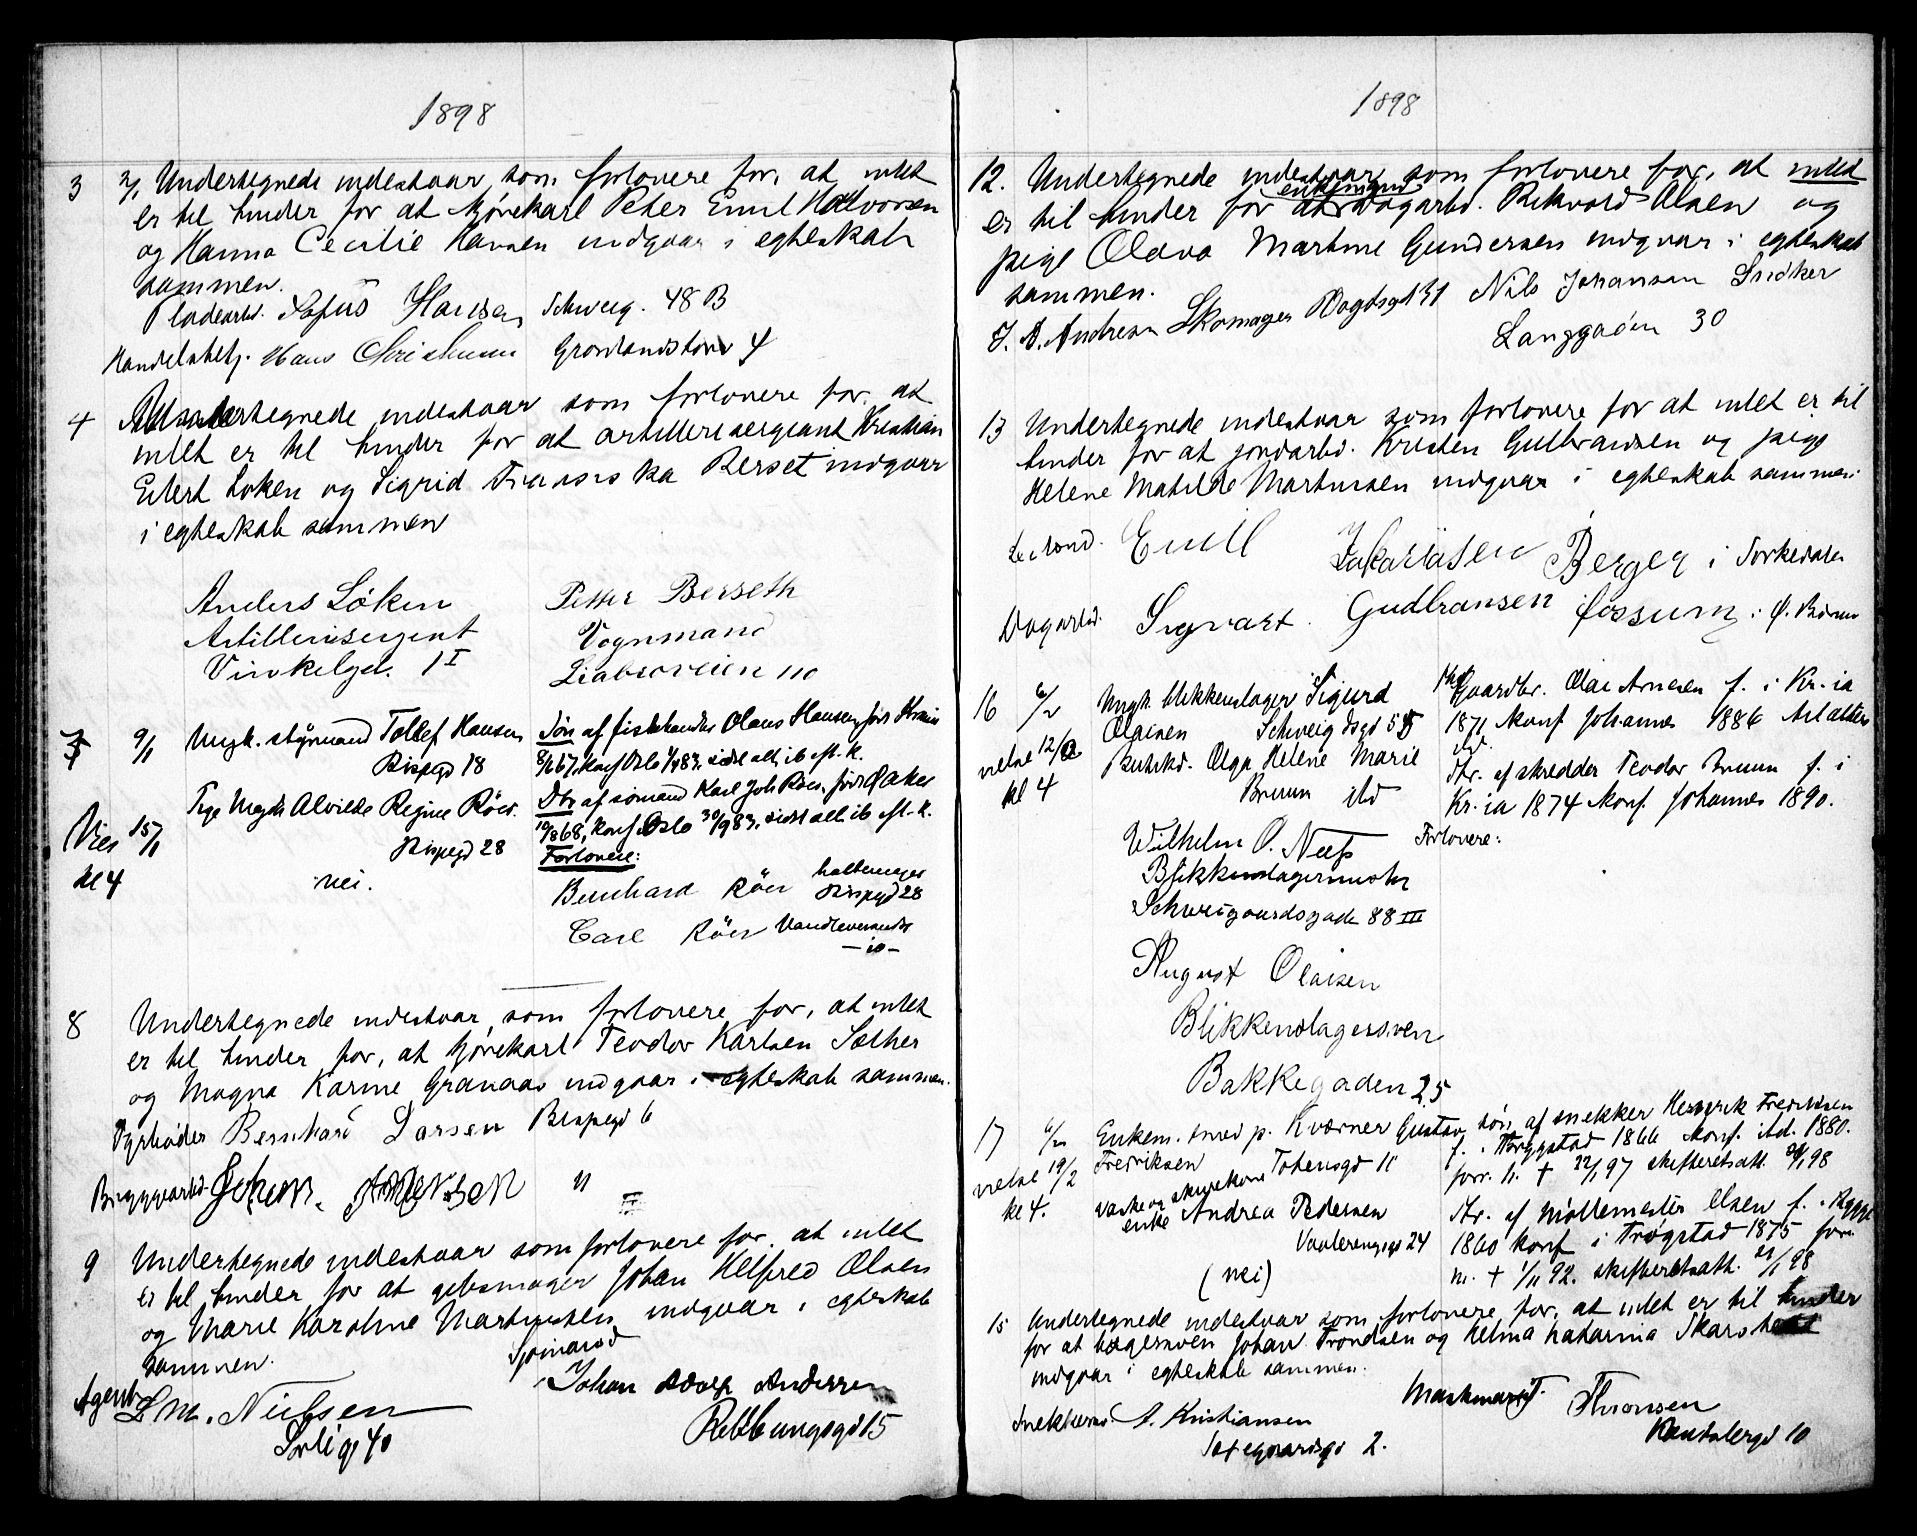 1898
3 2/1 Undertegnede indestaar som forlovere for, at intet
er til hinder for at kjørekarl Peter Emil Halvorsen
og Hanna Cecilie Hansen indgaar i egteskab
sammen.
Pladearb. Sofus Hansen Schweig. 48 B
Handelsbetj. Hans Christensen Grønlandstorv 4
4 Undertegnede indestaar som forlovere for, at
intet er til hinder for at artillerisergeant Kristian
Eilert Løken og Sigrid Fransiska Berset indgaar
i egteskab sammen
Anders Løken Petter Berseth
Artillerisergent Vognmand
Vinkelgd. 1 I Liabroveien 110
7 9/1 Ungk. styrmand Tollef Hansen Søn af fiskehandler Olaus Hansen, født Krania
Bispegd 18 8/1 67, konf Oslo 1/4 83, sidst alt. ib eft. k.
Pige Magda Alvilde Regine Röer. Dtr af sømand Karl Joh Röer, født Aker
Vies 15/1 Bispegd 28 19/8 68, konf. Oslo 30/9 83, sidst alt ib eft. k.
Forlovere:
kl 4 nei. Bernhard Röer Bispegd 28
Carl Röer Vandleverandør
— ib —
8 Undertegnede indestaar som forlovere for, at intet
er til hinder for, at kjørekarl Teodor Karlsen Sæther
og Magna Karine Granaas indgaar i egteskab sammen.
Fyrbøder Bernhard Larsen Bispegd 6
Bryggearbd. Johan Andersen " III
9 Undertegnede indestaar som forlovere for, at intet
er til hinder for at gibsmager Johan Helfred Olsen
og Marie Karoline Martinsen indgaar i egteskab
sammen.
Agent L. M. Nielsen Johan Adolf Andersen
Sølig 40 Rubbungsgd 15
1898
12. Undertegnede indestaar som forlovere for, at intet
er til hinder for at enkemand dagarbd. Rikvard Olsen og
pige Olava Martine Gundersen indgaar i egteskab
sammen.
J. A. Andresen Skomager Vogtsgd 31 Nils Johansen Snedker
Langgaden 30
13 Undertegnede indestaar som forlovere for at intet er til
hinder for at jordarbd. Kristen Gulbrandsen og pige
Helene Matilde Martinsen indgaar i egteskab sammen.
Emil Zakariasen Berger i Sørkedalen
Dagarbd. Sigvart Gudbransen Fossum i Ø. Bærum
16 6/2 Ungk. blikkenslager Sigurd Gaardbr. Olai Arnesen f. i Kr.ia
Olaisen Schweigdsgd 55 1871 konf Johannes 1886
vielse 12/2 Butikd. Olga Helene Marie Dtr. af skredder Teodor Bruun f. i
kl 4 Bruun ibd Kr.ia 1874 konf. Johannes 1890.
Wilhelm O. Næss Forlovere:
Blikkenslagermester
Schweigaardsgade 88 III
August Olaisen
Blikkenslagersven
Bakkegaden 25
17 6/2 Enkem. smed p. Kværner Gustav søn af snekker Henrik Fredriksen
Fredriksen Totensgd 11 f. i Trøgstad 1866 konf. ibd. 1880.
vielse 19/2 vaske og skurekone forr. h. + 22/1 97 skifteretsatt. 24/1 98
kl 4. enke Andrea Pedersen Dtr. af møllemester Olsen f. i Rygge
Vaalerengsgd 24 1860 konf i Trøgstad 1875 forr.
(nei) m. + 1/11 92. skifteretsatt. 29/1 98
15 Undertegnede indestaar som forlovere for, at intet er til hinder
for at bagersven Johan Trondsen og Helma Katarina Skarsholt
indgaar i egteskab sammen.
Snekkersv. A. Kristiansen Maskmand Thronsen
Saxegaardsgd 2. Randsbergd 10